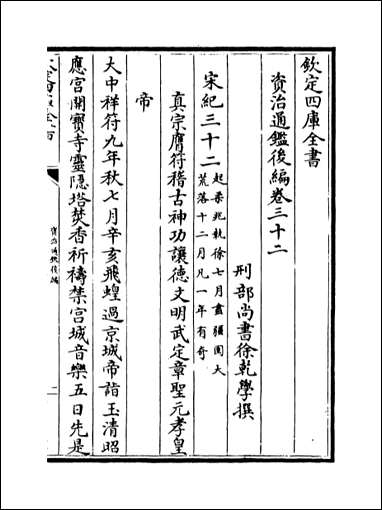 欽定四庫全書
資治通鑑後編卷三十二
刑部尚書徐乾學撰
宋紀三十二
起柔兆執徐七月盡疆圉大
荒落十二月凡一年有奇
真宗膺符稽古神功讓德文明武定章聖元孝皇
帝
大中祥符九年秋七月辛亥飛蝗過京城帝詣玉清昭
應宮開寶寺靈隱塔焚香祈禱禁宮城音樂五日先是
資治通鑑後編
一